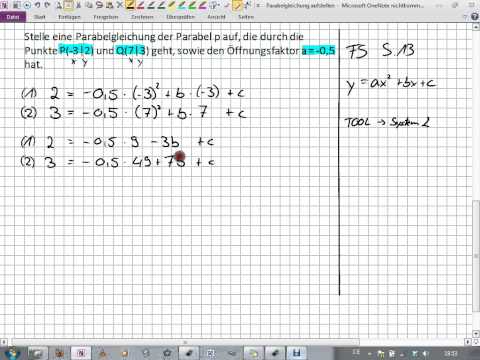 Parabelgleichung aufstellen - Microsoft OneNote nichtkomm...
Datei
Start
Einfügen
Freigeben
Zeichnen
Überprüfen
Ansicht
Stelle eine Parabelgleichung der Parabel p auf, die durch die
Punkte P(-3|2) und Q(7|3) geht, sowie den Öffnungsfaktor a=-0,5
x y x y
hat.
(1) 2 = -0,5 · (-3)² + b · (-3) + c
(2) 3 = -0,5 · (7)² + b · 7 + c
(1) 2 = -0,5 · 9 - 3b + c
(2) 3 = -0,5 · 49 + 7b + c
FS S. 13
y = ax² + bx + c
TOOL → System 2
DE
18:53